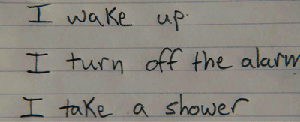 I wake up.
I turn off the alarm
I take a shower